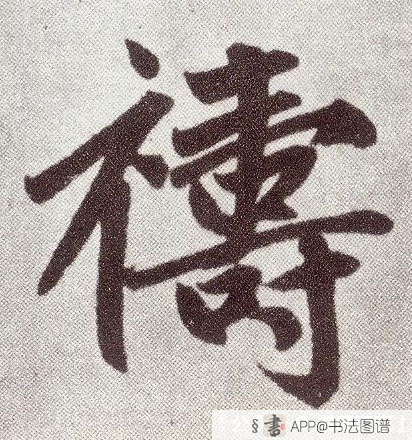 禱
書 APP@书法图谱